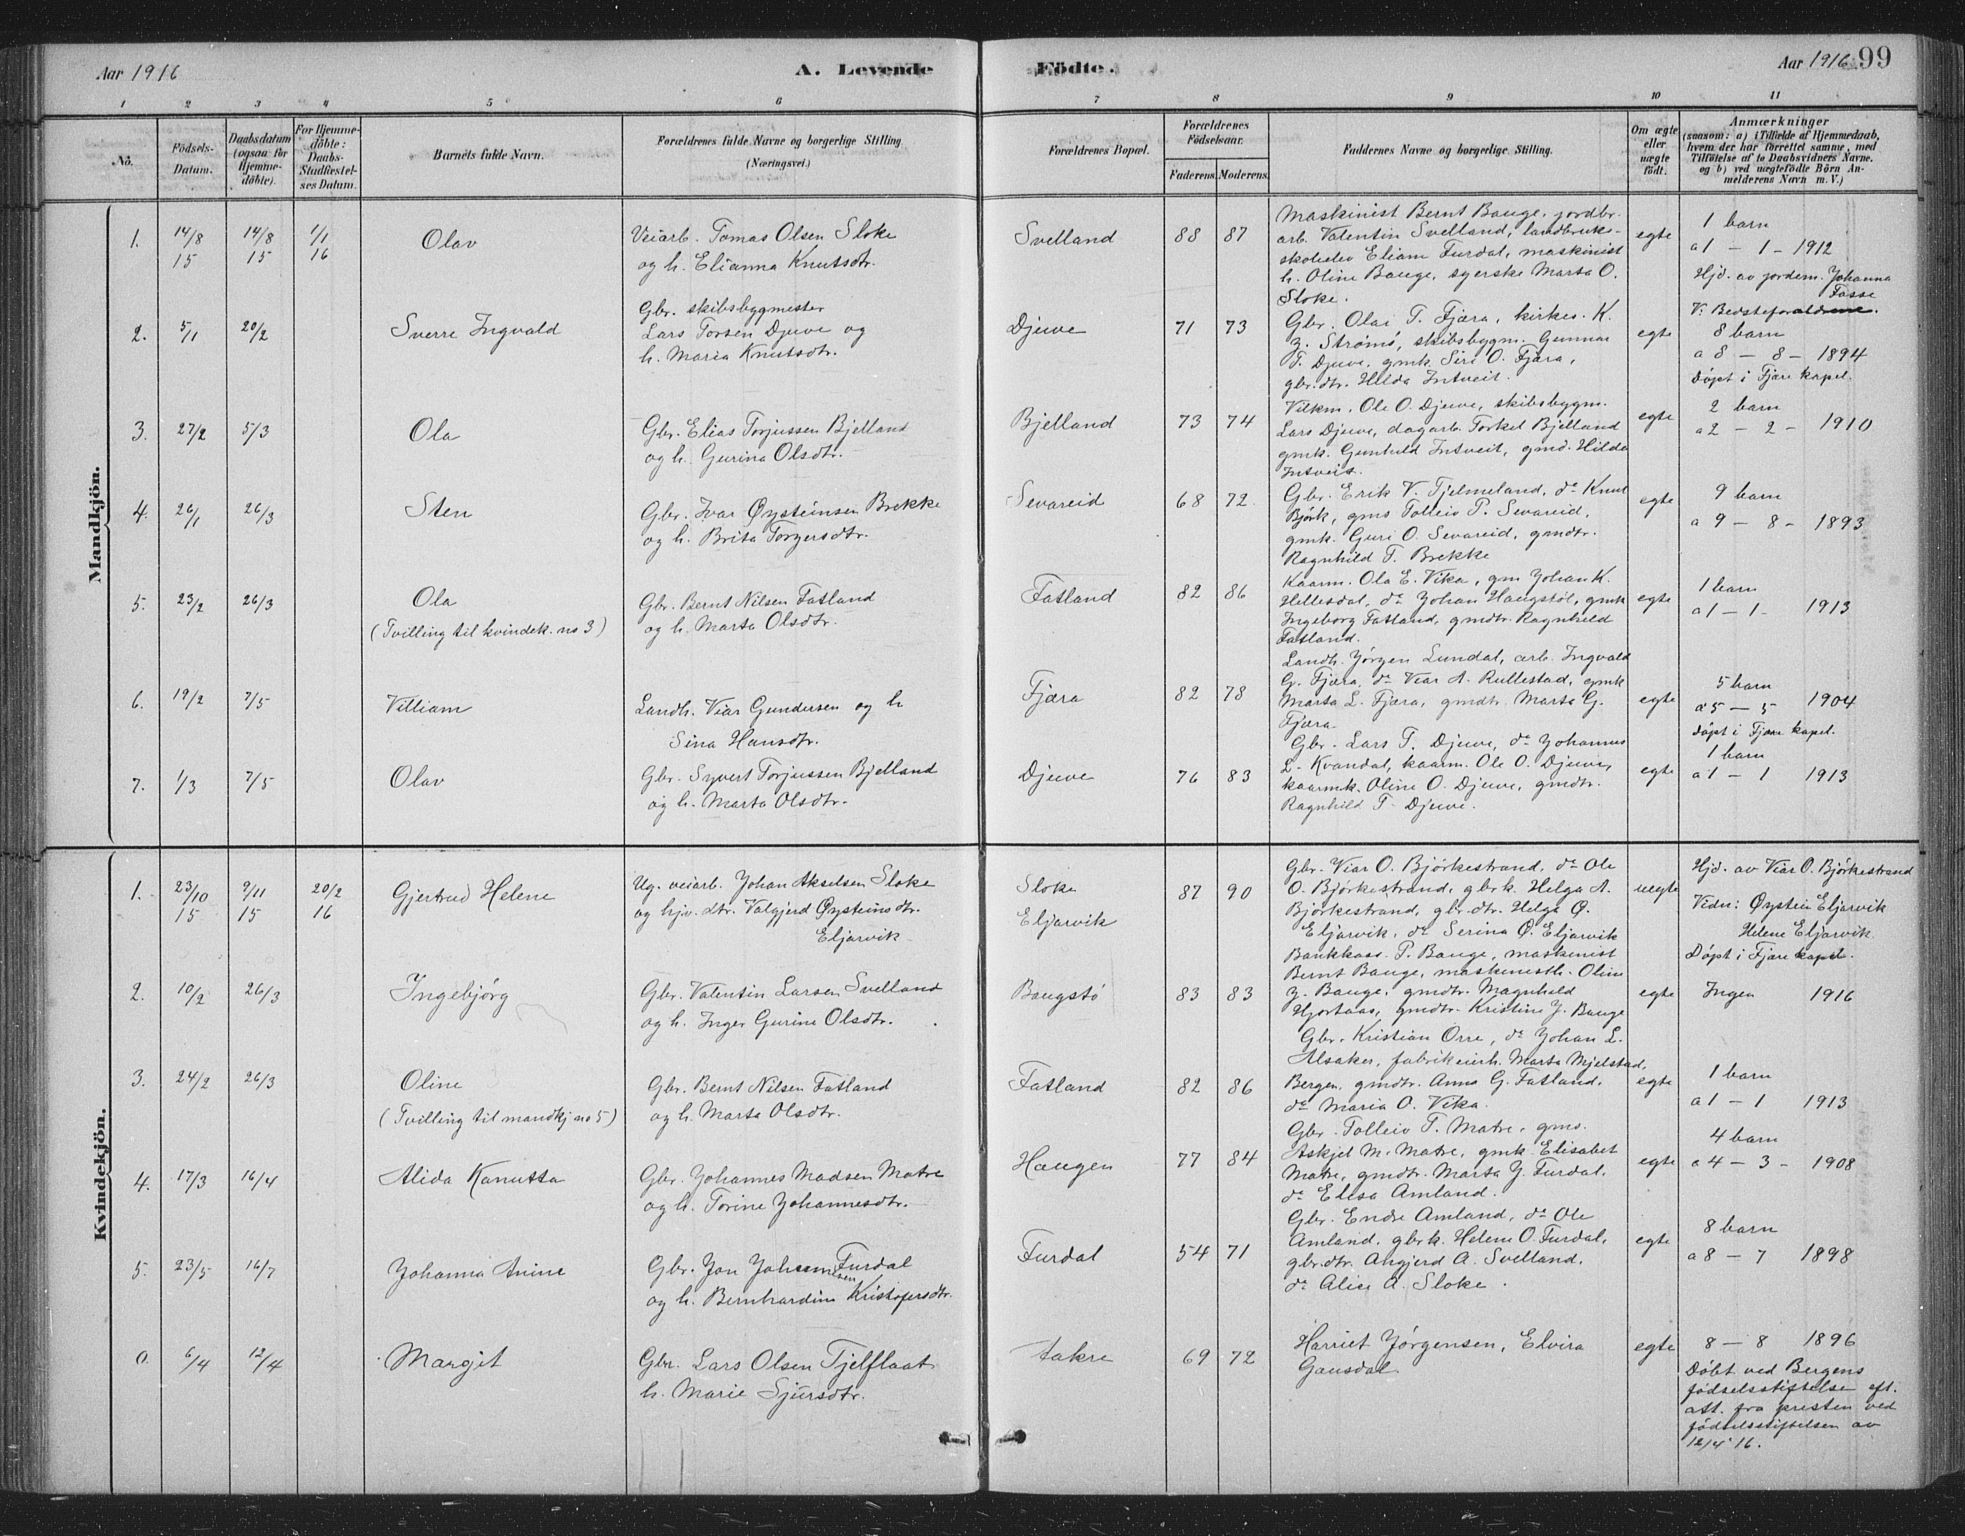 Aar 1916
A. Levende Födte.
Aar 1916 99
1 2 3 4 5 6 7 8 9 10 11
No.
Födsels-
Datum.
Daabsdatum
(ogsaa for
Hjemme-
döbte).
For Hjemme-
döbte:
Daabs-
Stadfæstel-
ses Datum.
Barnets fulde Navn.
Forældrenes fulde Navne og borgerlige Stilling
(Næringsvei.)
Forældrenes Bopæl.
Forældrenes
Födselsaar.
Faderens. Moderens.
Faddernes Navne og borgerlige Stilling.
Om ægte
eller
uægte
födt.
Anmærkninger
(saasom: a) i Tilfælde af Hjemmedaab,
hvem der har forrettet samme, med
Tilföielse af to Daabsvidners Navne,
og b) ved uægtefödte Börn An-
melderens Navn m. V.)
Mandkjön.
1. 14/8 15 14/8 15 1/1 16
Olav
Veiarb. Tomas Olsen Sloke
og h. Elianna Knutsdtr.
Svelland
88 87
Maskinist Bernt Bauge, jordbr.
arb. Valentin Svelland, landbruks-
skoleelev Eliam Furdal, maskinist
h. Oline Bauge, syerske Marta O.
Sloke.
egte
1 barn
a 1 - 1 - 1912
Hjd. av jordem. Johanna
Fosse
V: Bedsteforældrene.
2. 5/1 20/2
Sverre Ingvald
Gbr. skibsbygmester
Lars Torsen Djuve og
h. Maria Knutsdtr.
Djuve
71 73
Gbr. Olai T. Fjæra, kirkes. K.
Z. Strømø, skibsbygm. Gunnar
T. Djuve, gmk. Siri O. Fjæra,
gbr.dtr. Hilda Intveit.
egte
8 barn
a 8 - 8 - 1894
Döpt i Fjære kapel.
3. 27/2 5/3
Ola
Gbr. Elias Torjussen Bjelland
og h. Gurina Olsdtr.
Bjelland
73 74
Vilkm. Ole O. Djuve, skibsbygm.
Lars Djuve, dagarb. Torkel Bjelland
gmk. Gunhild Intveit, gmd. Hilda
Intveit.
egte
2 barn
a 2 - 2 - 1910
4. 26/1 26/3
Sten
Gbr. Ivar Øysteinsen Brekke
og h. Brita Torgersdtr.
Sevareid
68 72
Gbr. Erik V. Tjelmeland, do Knut
Bjørk, gms Tolleiv P. Sevareid,
gmk. Guri O. Sevareid, gmdtr.
Ragnhild T. Brekke
egte
9 barn
a 9 - 8 - 1893
5. 23/2 26/3
Ola
(Tvilling til kvindek. no 3)
Gbr. Bernt Nilsen Fatland
og h. Marta Olsdtr.
Fatland
82 86
Kaarm. Ola E. Vika, gm Johan K.
Hellesdal, do Johan Haugstøl, gmk
Ingeborg Fatland, gmdtr. Ragnhild
Fatland.
egte
1 barn
a 1 - 1 - 1913
6. 19/2 7/5
Villiam
Landh. Viar Gundersen og h
Sina Hansdtr.
Fjæra
82 78
Landh. Jörgen Lundal, arb. Ingvald
G. Fjæra, do Viar A. Rullestad, gmk
Marta L. Fjæra, gmdtr. Marta G.
Fjæra
egte
5 barn
a 5 - 5 1904
Döpt i Fjære kapel.
7. 1/3 7/5
Olav
Gbr. Syvert Torjussen Bjelland
og h. Marta Olsdtr.
Djuve
76 83
Gbr. Lars T. Djuve, do Johannes
L. Kvandal, kaarm. Ole O. Djuve,
kaarmk. Oline O. Djuve, gmdtr.
Ragnhild T. Djuve.
egte
1 barn
a 1 - 1 1913
Kvindekjön.
1. 23/10 15 9/11 15 20/2 16
Gjertrud Helene
Ug. veiarb. Johan Akselsen Sloke
og hjv. dtr. Valgjerd Øysteinsdtr.
Eljarvik
Sloke
Eljarvik
87 90
Gbr. Viar O. Björkestrand, do Ole
O. Björkestrand, gbrk. Helga A.
Björkestrand, gbr.dtr. Helga Ø.
Eljarvik, do Serina Ø. Eljarvik
uegte
Hjd. av Viar O. Björkestrand
Vidn: Øystein Eljarvik
Helene Eljarvik.
Döpt i Fjære kapel.
2. 10/2 26/3
Ingebjörg
Gbr. Valentin Larsen Svelland
og h. Inger Gurine Olsdtr.
Baugstø
83 83
Bankkass. P. Bauge, maskinist
Bernt Bauge, maskinisth. Oline
Z. Bauge, gmdtr. Magnhild
Hjortaas, gmdtr. Kristine J. Bauge
egte
Ingen 1916
3. 24/2 26/3
Oline
(Tvilling til mandkj no 5)
Gbr. Bernt Nilsen Fatland
og h. Marta Olsdtr.
Fatland
82 86
Gbr. Kristian Orre, do Johan L.
Alsaker, fabrikeierh. Marta Mjelstad,
Bergen, gmdtr. Anna G. Fatland,
do Maria O. Vika.
egte
1 barn
a 1 - 1 1913
4. 17/3 16/4
Alida Kanutta
Gbr. Johannes Madsen Matre
og h. Torine Johannesdtr.
Haugen
77 84
Gbr. Tolleiv T. Matre, gms.
Askjel M. Matre, gmk. Elisabet
Matre, gmdtr. Marta J. Furdal,
do Elisa Amland.
egte
4 barn
a 4 - 3 - 1908
5. 23/5 16/7
Johanna Anine
Gbr. Jon Johannessen Furdal
og h. Bernhardine Kristofersdtr.
Furdal
54 71
Gbr. Endre Amland, do Ole
Amland, gbrk. Helene O. Furdal,
gbr.dtr. Angjerd A. Svelland,
do Alice A. Sloke.
egte
8 barn
a 8 - 7 1898
0. 6/4 12/4
Margit
Gbr. Lars Olsen Tjelflaat
h. Marie Sjursdtr.
Aakre
69 72
Harriet Jörgensen, Elvira
Gausdal
egte
8 - 8 1896
Döbt ved Bergens
födselsstiftelse eft.
att. fra presten ved
födselsstiftelsen av
12/4 16.